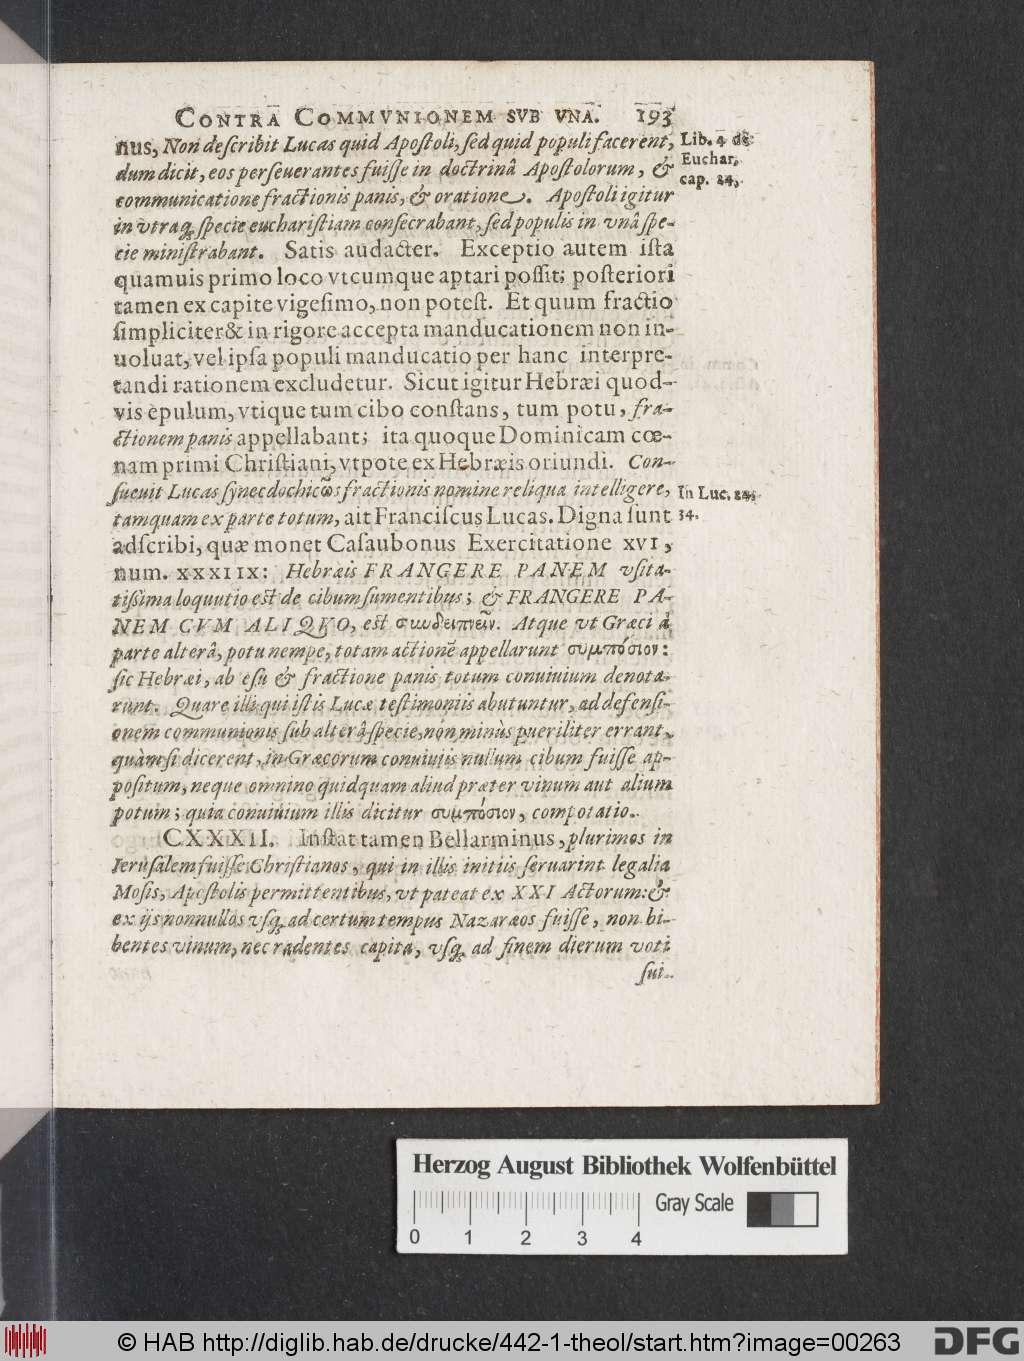 CONTRA COMMVNIONEM SVB VNA. 193
nus, Non deſcribit Lucas quid Apoſtoli, ſed quid populi facerent,
dum dicit, eos perſeuerantes fuiſſe in doctrinâ Apoſtolorum, &
communicatione fractionis panis, & oratione. Apoſtoli igitur
in vtraq; ſpecie euchariſtiam conſecrabant, ſed populis in vnâ ſpe-
cie miniſtrabant. Satis audacter. Exceptio autem iſta
quamuis primo loco vtcumque aptari poſſit; poſteriori
tamen ex capite vigeſimo, non poteſt. Et quum fractio
ſimpliciter & in rigore accepta manducationem non in-
uoluat, vel ipſa populi manducatio per hanc interpre-
tandi rationem excludetur. Sicut igitur Hebræi quod-
vis epulum, vtique tum cibo conſtans, tum potu, fra-
ctionem panis appellabant; ita quoque Dominicam cœ-
nam primi Chriſtiani, vtpote ex Hebræis oriundi. Con-
ſueuit Lucas ſynecdochicῶs fractionis nomine reliqua intelligere,
tamquam ex parte totum, ait Franciſcus Lucas. Digna ſunt
adſcribi, quæ monet Caſaubonus Exercitatione XVI,
num. XXXIIX: Hebræis FRANGERE PANEM vſita-
tiſſima loquutio eſt de cibum ſumentibus; & FRANGERE PA-
NEM CVM ALIQVO, eſt συνδειπνεῖν. Atque vt Græci à
parte alterâ, potu nempe, totam actionē appellarunt συμπόσιον:
ſic Hebræi, ab eſu & fractione panis totum conuiuium denota-
runt. Quare illi qui iſtis Lucæ teſtimoniis abutuntur, ad defenſi-
onem communionis ſub alterâ ſpecie, non minùs pueriliter errant,
quàm ſi dicerent, in Græcorum conuiuiis nullum cibum fuiſſe ap-
poſitum, neque omnino quidquam aliud præter vinum aut alium
potum; quia conuiuium illis dicitur συμπόσιον, compotatio.
CXXXII. Inſtat tamen Bellarminus, plurimos in
Ieruſalem fuiſſe Chriſtianos, qui in illis initiis ſeruarint legalia
Moſis, Apoſtolis permittentibus, vt pateat ex XXI Actorum: &
ex ijs nonnullos vſq; ad certum tempus Nazaræos fuiſſe, non bi-
bentes vinum, nec radentes capita, vſq; ad finem dierum voti
ſui.
Lib. 4 de
Euchar.
cap. 24,
In Luc. 24,
34.
Herzog August Bibliothek Wolfenbüttel
Gray Scale
0 1 2 3 4
© HAB http://diglib.hab.de/drucke/442-1-theol/start.htm?image=00263
DFG